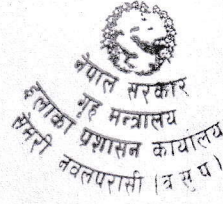 नेपाल सरकार
गृह मन्त्रालय
इलाका प्रशासन कार्यालय
सेमरी नवलपरासी (ब सु प)